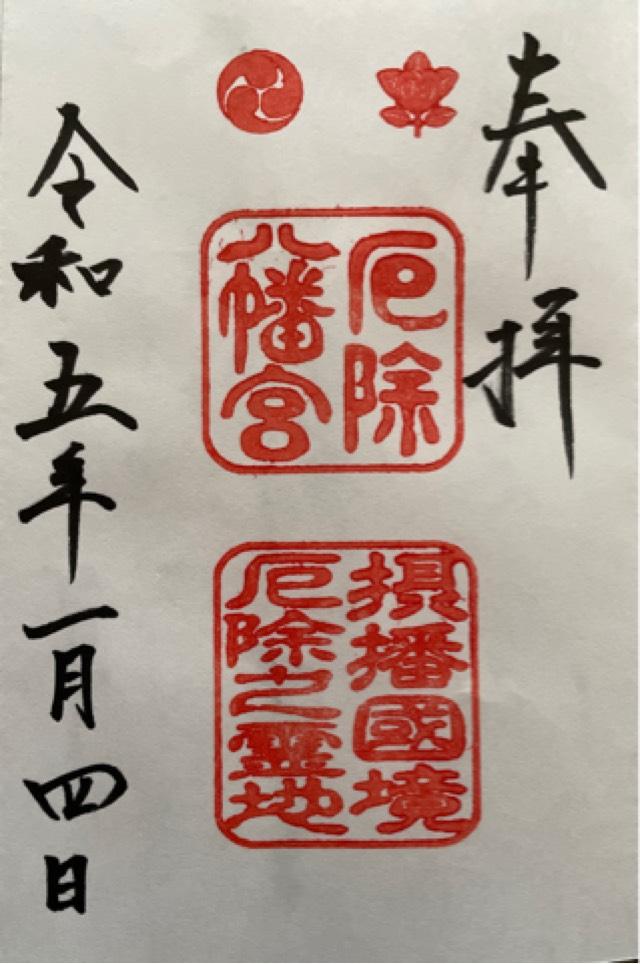 奉拝
厄除
八幡宮
摂播國境
厄除之霊地
令和五年一月四日